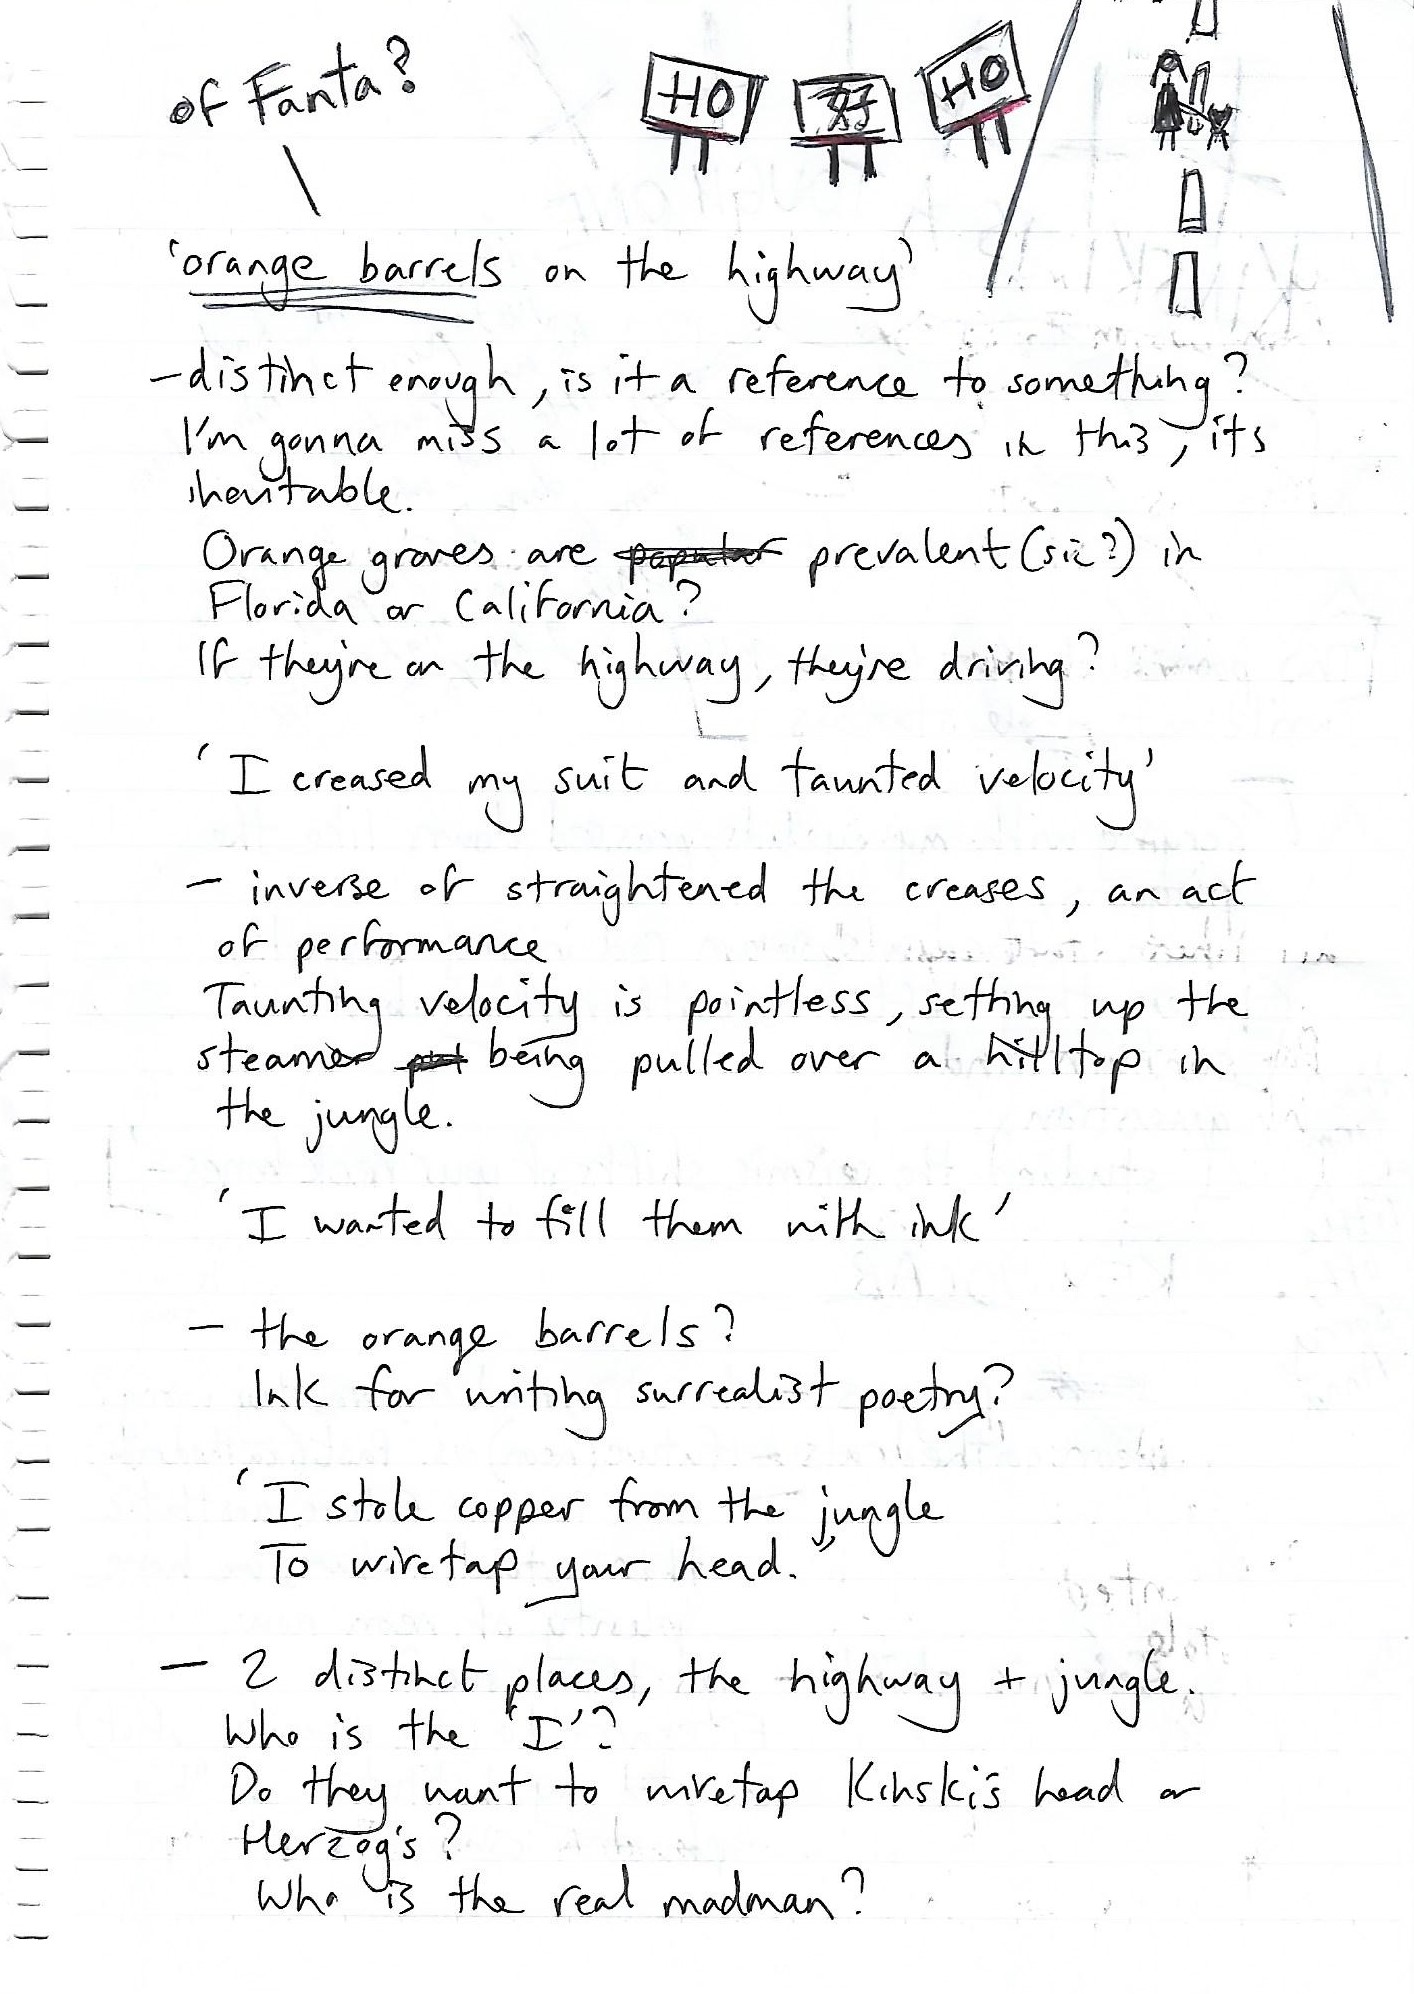 of Fanta?
HO 好 HO
'orange barrels on the highway'
- distinct enough, is it a reference to something?
I'm gonna miss a lot of references in this, its
inevitable.
Orange groves are popular prevalent (sic?) in
Florida or California?
If they're on the highway, they're driving?
'I creased my suit and taunted velocity'
- inverse of straightened the creases, an act
of performance
Taunting velocity is pointless, setting up the
steamer being pulled over a hilltop in
the jungle.
'I wanted to fill them with ink'
- the orange barrels?
Ink for writing surrealist poetry?
'I stole copper from the jungle
To wiretap your head.'
- 2 distinct places, the highway + jungle.
Who is the 'I'?
Do they want to wiretap Kinski's head or
Herzog's?
Who is the real madman?